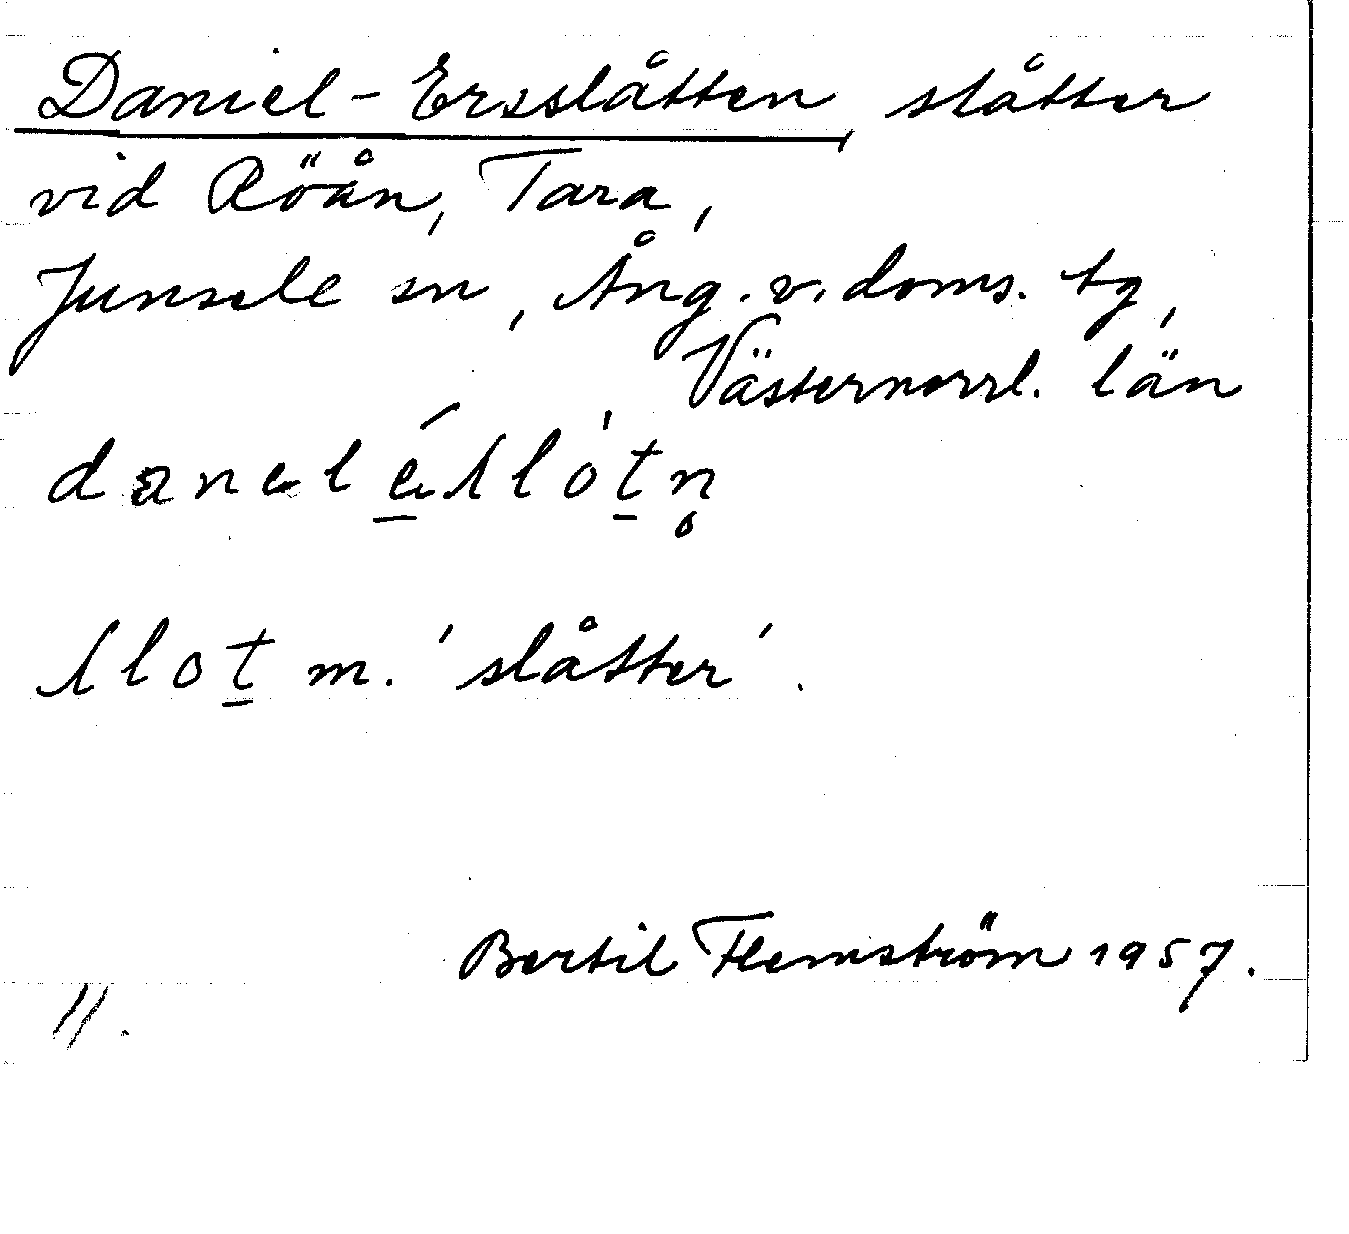 Daniel-Ersslåtten, slåtter
vid Röån, Tara,
Junsele sn, Ång. v. doms. tg,
Västernorrl. län
slot m. 'slåtter'.
Bertil Flemström 1957.